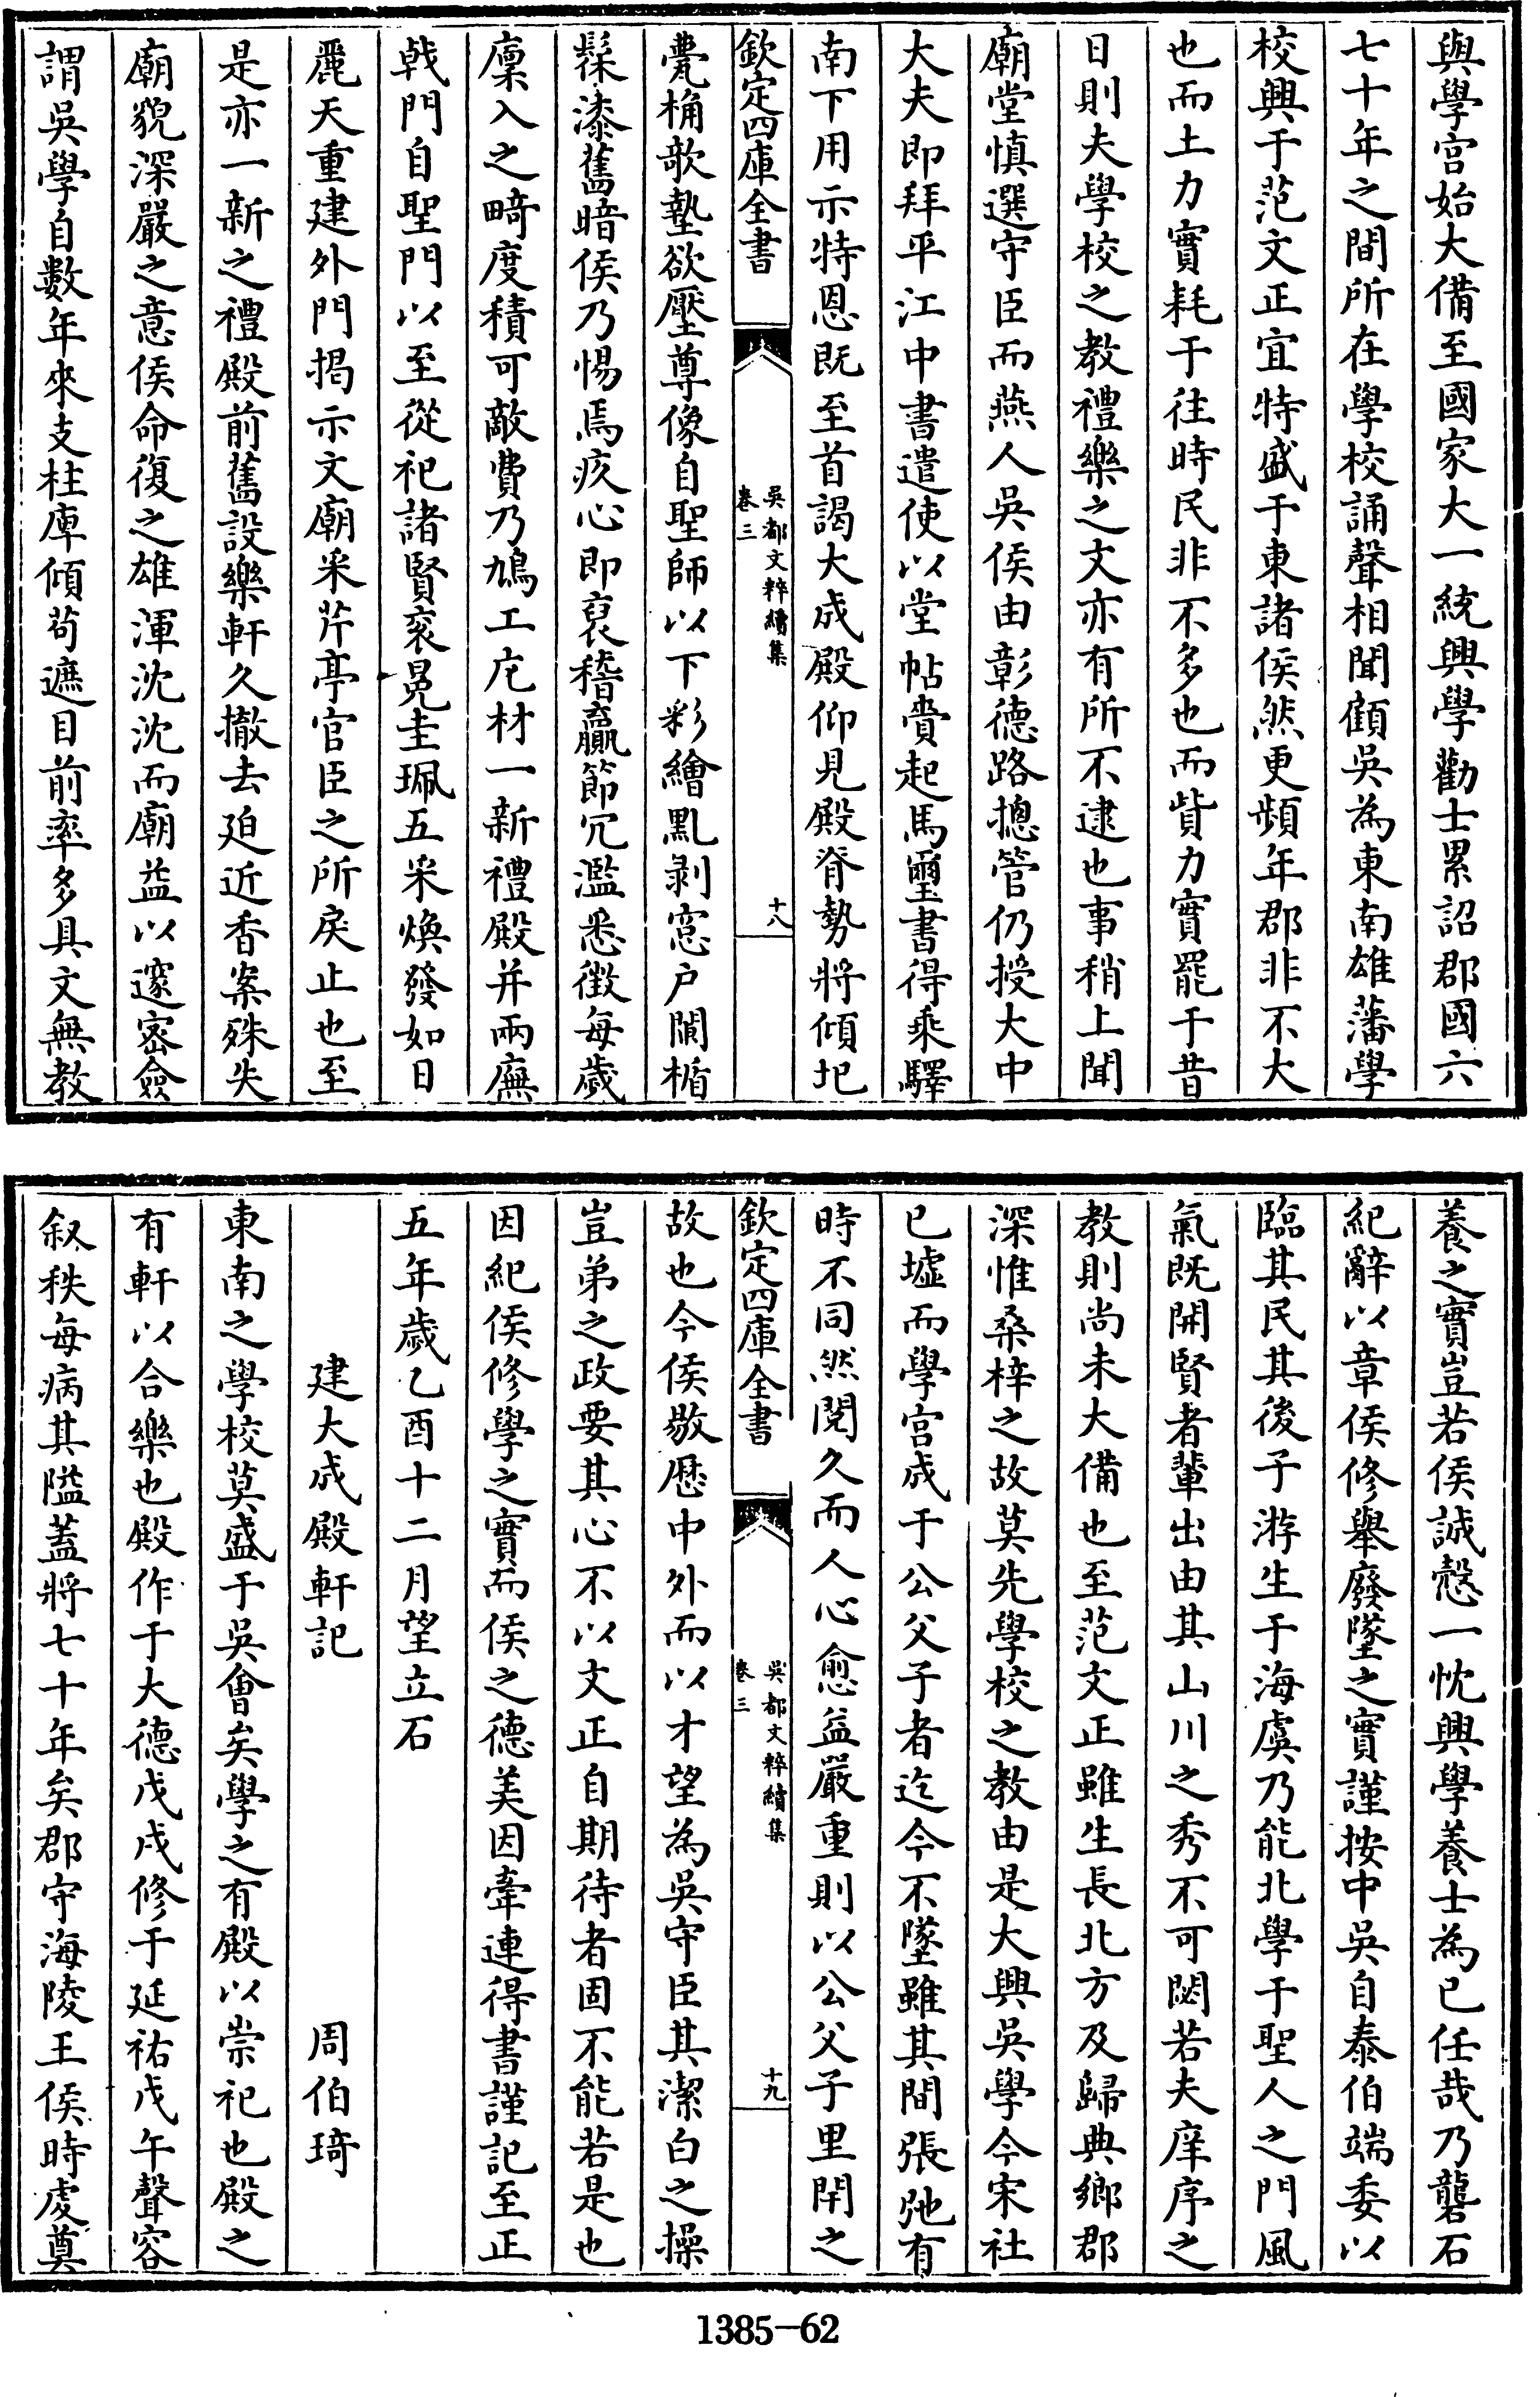 與學宫始大備至國家大一統興學勸士累詔郡國六
七十年之間所在學校誦聲相聞顧吳為東南雄藩學
校興于范文正宜特盛于東諸侯然更頻年郡非不大
也而土力實耗于往時民非不多也而貲力實罷于昔
日則夫學校之教禮樂之文亦有所不逮也事稍上聞
廟堂慎選守臣而燕人吳侯由彰德路摠管仍授大中
大夫即拜平江中書遣使以堂帖賁起馬璽書得乘驛
南下用示特恩既至首謁大成殿仰見殿脊勢將傾圮
欽定四庫全書
吳都文粹續集
卷三
十八
甍桷欹墊欲壓尊像自聖師以下彩繪㸃剥窓户闌楯
髹漆舊暗侯乃惕焉疚心即裒稽贏節冗濫悉徵每歲
廩入之畸度積可敵費乃鳩工庀材一新禮殿并兩廡
戟門自聖門以至從祀諸賢衮冕圭珮五采煥發如日
麗天重建外門揭示文廟采芹亭官臣之所戾止也至
是亦一新之禮殿前舊設樂軒久撤去廹近香案殊失
廟貌深嚴之意侯命復之雄渾沈沈而廟益以邃宻僉
謂吳學自數年來支柱庳傾茍遮目前率多具文無教
養之實豈若侯誠慤一忱興學養士為已任哉乃礱石
紀辭以章侯修舉廢墜之實謹按中吳自泰伯端委以
臨其民其後子游生于海虞乃能北學于聖人之門風
氣既開賢者輩出由其山川之秀不可閟若夫庠序之
教則尚未大備也至范文正雖生長北方及歸典鄉郡
深惟桑梓之故莫先學校之教由是大興吳學今宋社
已墟而學宫成于公父子者迄今不墜雖其間張弛有
時不同然閲久而人心愈益嚴重則以公父子里閈之
欽定四庫全書
吳都文粹續集
卷三
十九
故也今侯敭歴中外而以才望為吳守臣其潔白之操
豈弟之政要其心不以文正自期待者固不能若是也
因紀侯修學之實而侯之德美因牽連得書謹記至正
五年歲乙酉十二月望立石
建大成殿軒記　周伯琦
東南之學校莫盛于吳會矣學之有殿以崇祀也殿之
有軒以合樂也殿作于大德戊戌修于延祐戊午聲容
叙秩每病其隘蓋將七十年矣郡守海陵王侯時虔奠
1385-62